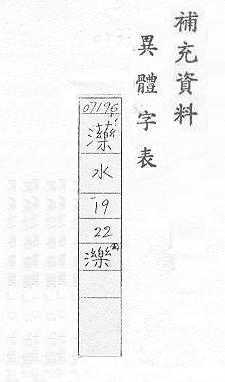 補充資料
異體字表
07196
水
19
22